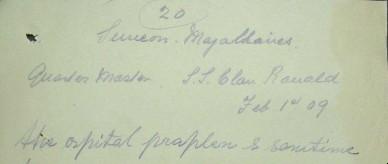 20
Simeon. Magalhaires.
Quarter Master S.S. Clan Ranald
Feb 1st 09
ospital praplen &